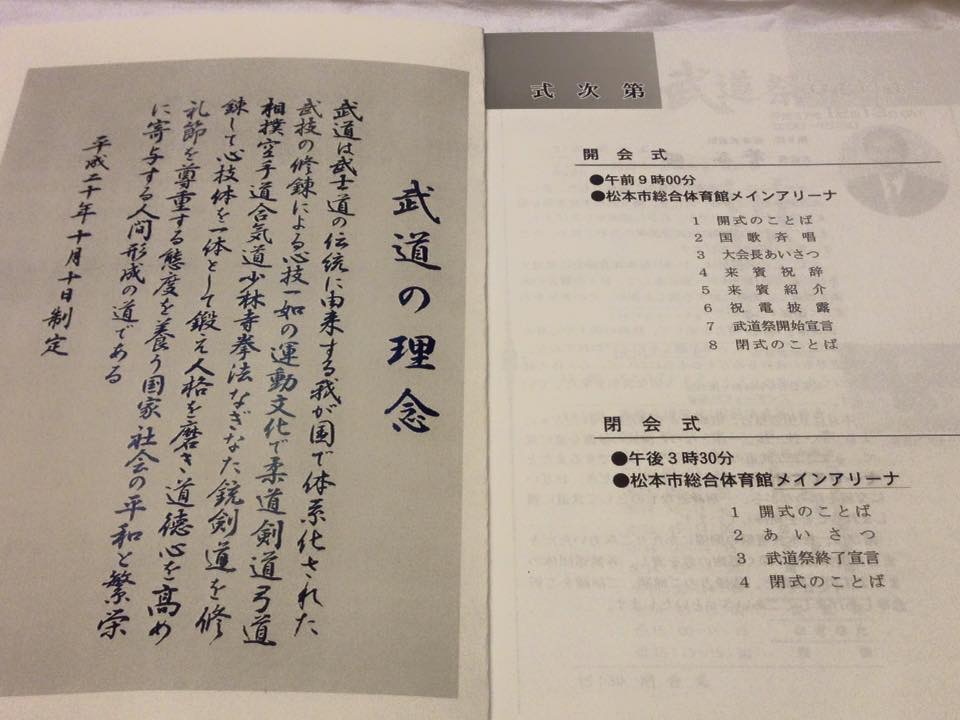 武道の理念
武道は武士道の伝統に由来する我が国で体系化された
武技の修錬による心技一如の運動文化で柔道剣道弓道
相撲空手道合気道少林寺拳法なぎなた銃剣道を修
錬して心技体を一体として鍛え人格を磨き道徳心を高め
礼節を尊重する態度を養う国家社会の平和と繁栄
に寄与する人間形成の道である
平成二十年十月十日制定
式次第
開会式
●午前9時00分
●松本市総合体育館メインアリーナ
1 開式のことば
2 国歌斉唱
3 大会長あいさつ
4 来賓祝辞
5 来賓紹介
6 祝電披露
7 武道祭開始宣言
8 閉式のことば
閉会式
●午後3時30分
●松本市総合体育館メインアリーナ
1 開式のことば
2 あいさつ
3 武道祭終了宣言
4 閉式のことば